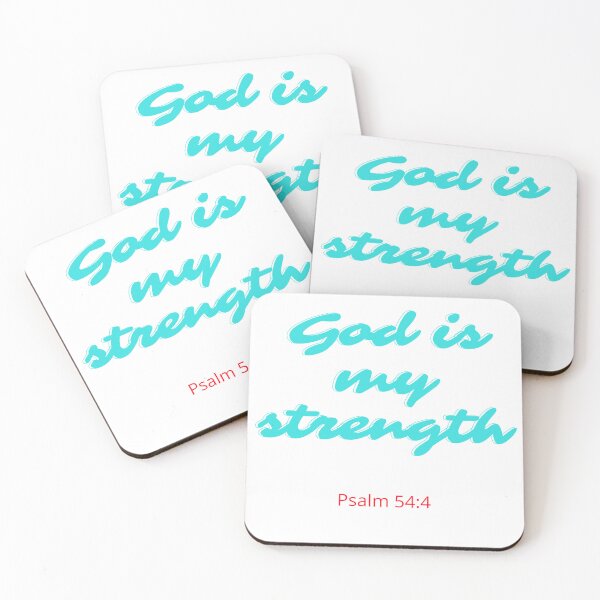 God is
my
God is
my
strength
God is
my
strength
Psalm 5
God is
my
strength
Psalm 54:4